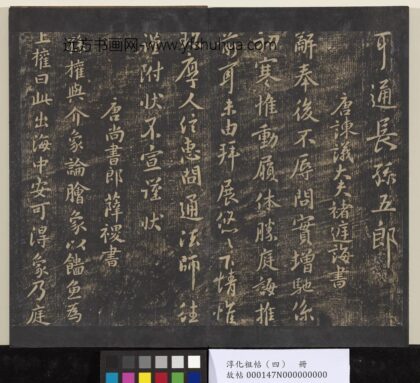 远方书画网-www.yfshuhua.com
耳通長孫五郎
唐諫議大夫褚庭誨書
辭奉後不辱問實增馳係
初寒推動履休勝庭誨推
前耳未由拜展悠々下情惟
珎厚人往惠問通法師往
附状不宣謹状
唐尚書郎薛稷書
權與介象論膾象以鯔魚為
上權曰此出海中安可得象乃庭
淳化祖帖(四) 冊
故帖 000147N000000000